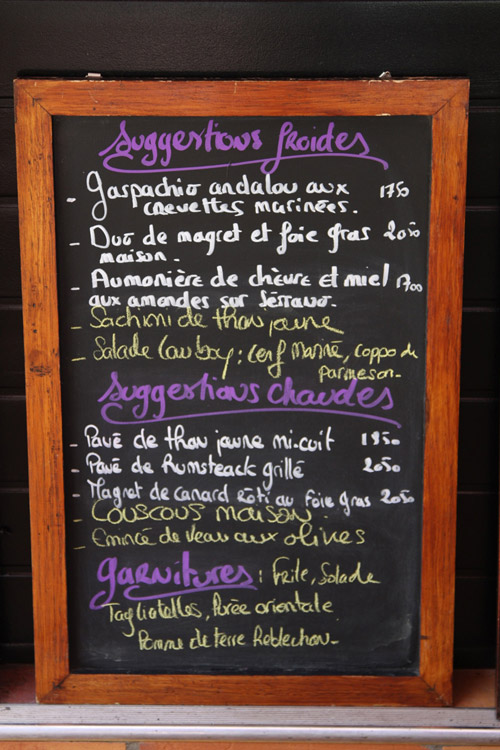 Suggestions froides
- Gaspachio andalou aux 1750
crevettes marinées.
- Duo de magret et foie gras 2050
maison.
- Aumonière de chèvre et miel 1700
aux amandes sur Serrano.
- Sachimi de thon jaune
- Salade Cowboy : Cerf Mariné, Coppo de
parmeson.
Suggestions Chaudes
- Pavé de thon jaune mi-cuit 1850
- Pavé de Rumsteack grillé 2050
- Magret de canard rôti au foie gras 2050
- Couscous maison.
- Emincé de Veau aux olives
Garnitures : Frite, Salade
Tagliatelles, Purée orientale
Pomme de terre Reblechon-